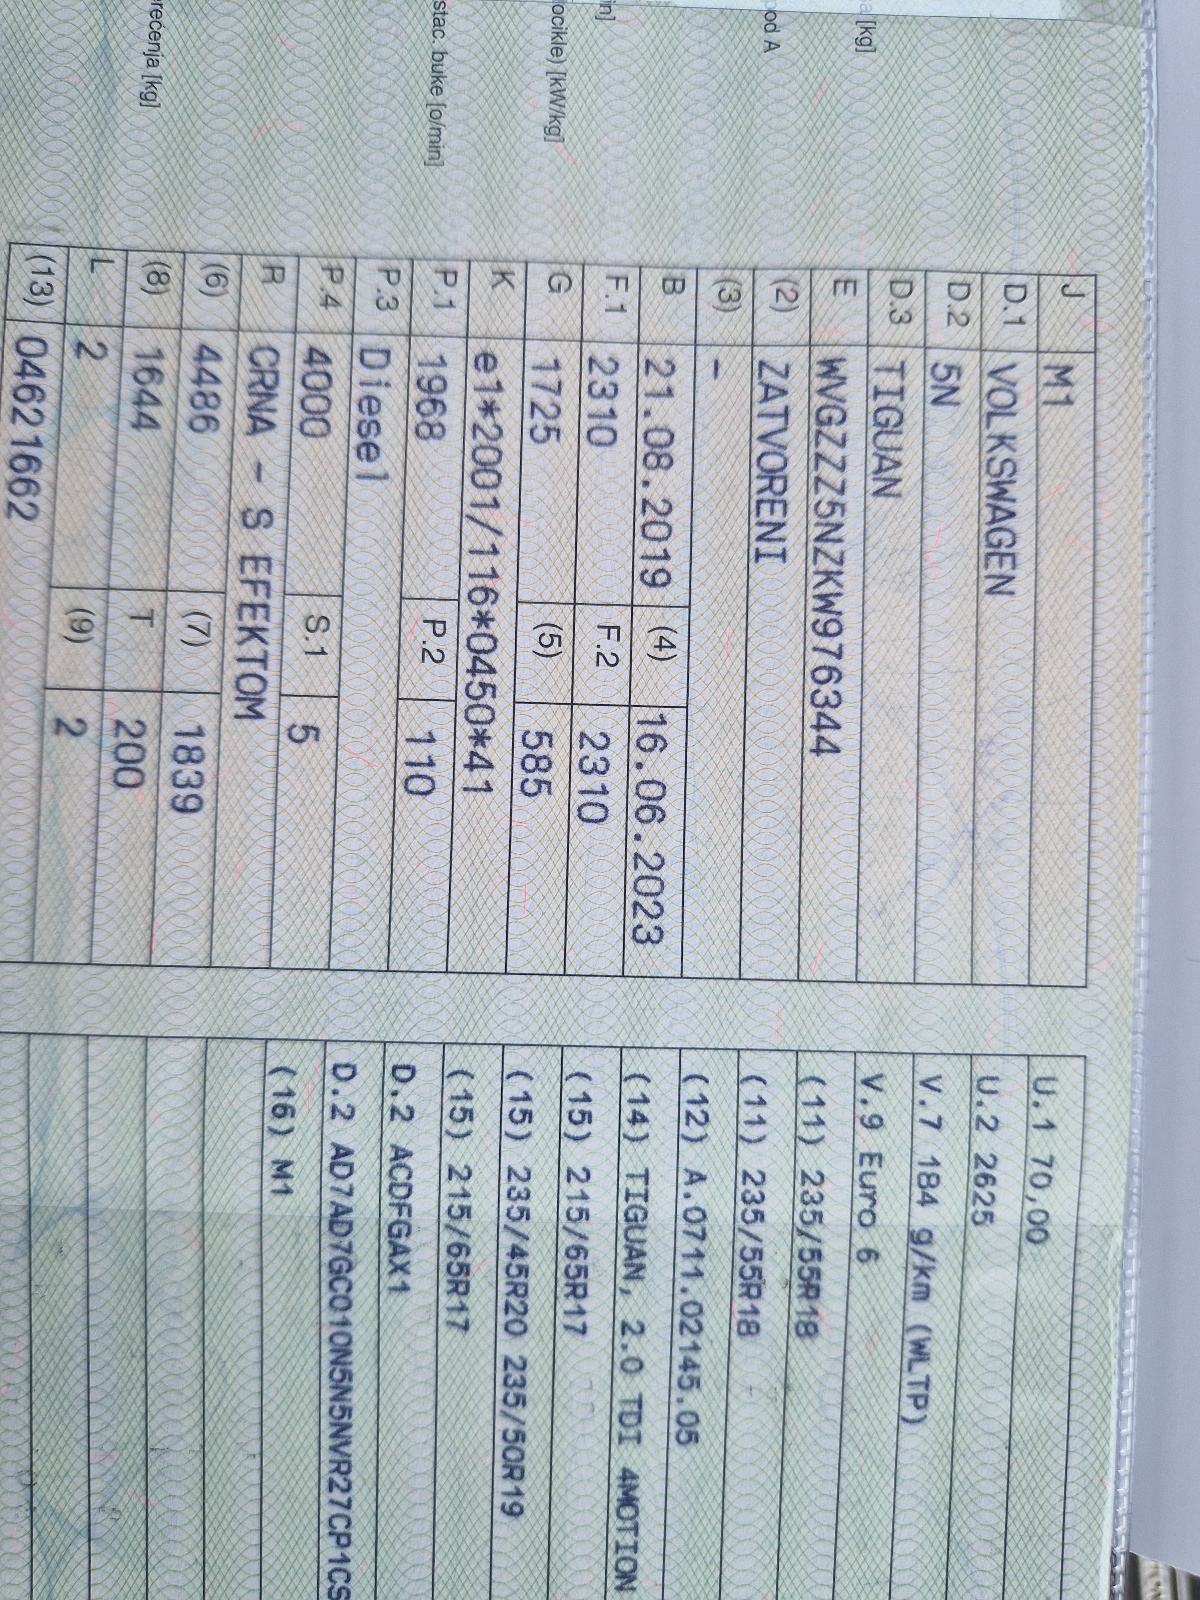 a [kg]
pod A
in]
ocikle) [kW/kg]
stac. buke [o/min]
erećenja [kg]
J M1
D.1 VOLKSWAGEN
D.2 5N
D.3 TIGUAN
E WVGZZZ5NZKW976344
(2) ZATVORENI
(3) -
B 21.08.2019 (4) 16.06.2023
F.1 2310 F.2 2310
G 1725 (5) 585
K e1*2001/116*0450*41
P.1 1968 P.2 110
P.3 Diesel
P.4 4000 S.1 5
R CRNA - S EFEKTOM
(6) 4486 (7) 1839
(8) 1644 T 200
L 2 (9) 2
(13) 04621662
U.1 70,00
U.2 2625
V.7 184 g/km (WLTP)
V.9 Euro 6
(11) 235/55R18
(11) 235/55R18
(12) A.0711.02145.05
(14) TIGUAN, 2.0 TDI 4MOTION
(15) 215/65R17
(15) 235/45R20 235/50R19
(15) 215/65R17
D.2 ACDFGAX1
D.2 AD7AD7GC010N5N5NVR27CP1CS
(16) M1